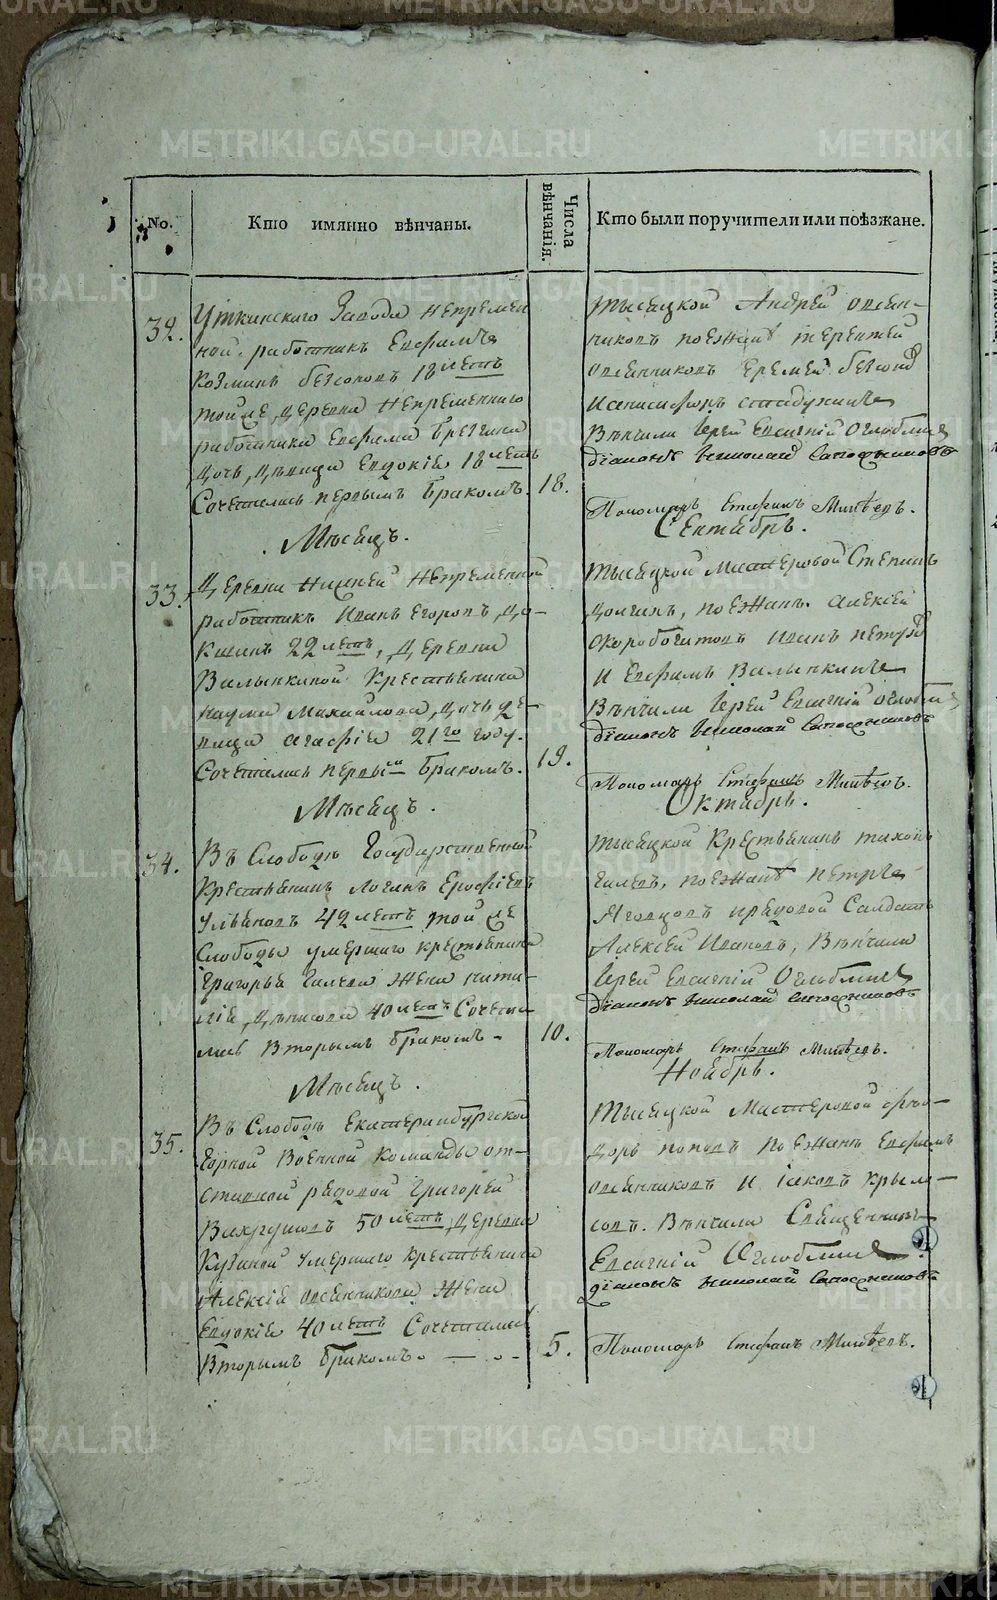 No.
Кто имянно вѣнчаны.
Числа вѣнчанія.
Кто были поручители или поѣзжане.
32.
Уткинскаго Завода непремен-
ной работникъ Евфимъ
Козминъ 18 летъ
тойже деревни непременнаго
работника Евфима
дочь девица Евдокія 18 летъ
Сочетались первымъ бракомъ.
18.
тысяцкой Андрей Овсян-
никовъ поезжанѣ терентей
Овсянниковъ Еремей
Венчали Іерей Евсигній Оглоблинъ
діаконъ Николай Сапожниковъ
Пономарь Стефанъ
Месяцъ.
Сентябрь.
33.
Деревни Нижней непременной
работникъ Иванъ Егоровъ До-
кшинъ 22 летъ, Деревни
Валынкиной Крестьянина
наума Михайлова дочь де-
вица агафія 21го году.
Сочетались первымъ бракомъ.
19.
тысяцкой Мастеровой Степанъ
поезжанѣ алексей
Скоробогатовъ Иванъ петровъ
и Евфимъ Валынкинъ
Венчали Іерей Евсигній Оглоблинъ
діаконъ Николай Сапожниковъ
Пономарь Стефанъ
Месяцъ.
Октябрь.
34.
Въ Слободѣ Государственной
Крестьянинъ Логинъ Ерофѣевъ
Ульяновъ 42 летъ той же
Слободы умершаго крестьянина
Григорья Гилева Жена ната-
лія, 40 летъ Сочета-
лись Вторымъ бракомъ.
10.
тысяцкой Крестьянинъ тихонъ
гилевъ, поезжанѣ петръ
Яговцовъ и рядовой Салдатъ
Алексей Ивановъ, Венчали
Іерей Евсигній Оглоблинъ
діаконъ Николай Сапожниковъ
Пономарь Стефанъ
Месяцъ.
Ноябрь.
35.
Въ Слободѣ Екатеринбургской
Горной Военной Команды от-
ставной рядовой Григорей
Вахрушовъ 50 летъ, Деревни
Кузиной умершаго крестьянина
Алексія Овсянникова Жена
Евдокія 40 летъ Сочетались
Вторымъ бракомъ.
5.
тысяцкой Мастеровой фѣо-
доръ поповъ поезжанѣ Евфимъ
Овсянниковъ и Іаковъ Крыло-
совъ. Венчали Священникъ
Евсигній Оглоблинъ.
діаконъ Николай Сапожниковъ
Пономарь Стефанъ
METRIKI.GASO-URAL.RU